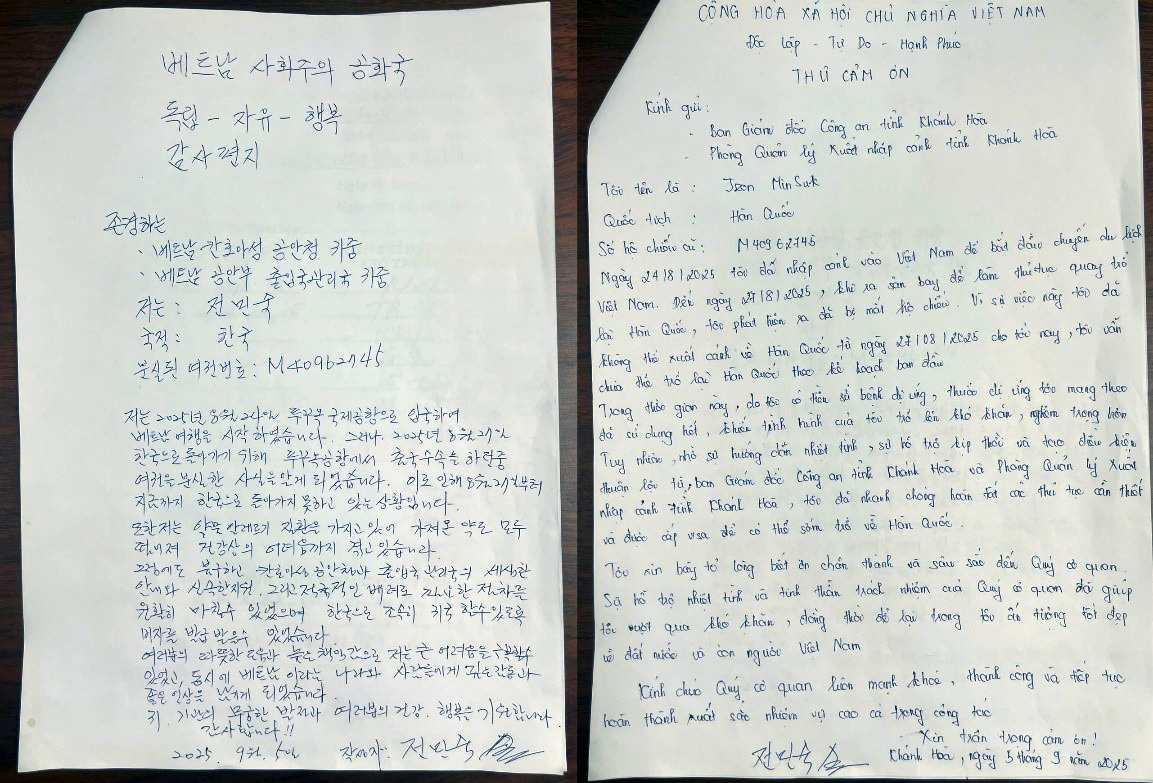 베트남 사회주의 공화국
독립 - 자유 - 행복
감사편지
존경하는
· 베트남 칸호아성 공안청 귀중
· 베트남 공안부 출입국관리국 귀중
저는 : 전민숙
국적 : 한국
분실된 여권번호 : M40962745
저는 2025년 8월 24일 푸꾸옥 국제공항으로 입국하여
베트남 여행을 시작하였습니다. 그러나 2025년 8월 27일
한국으로 돌아가기 위해 푸꾸옥공항에서 출국수속을 하던중
여권을 분실한 사실을 알게 되었습니다. 이로 인해 8월 27일부터
지금까지 한국으로 돌아가지 못하고 있는 상황입니다.
또한 저는 약물 알레르기 질환을 가지고 있어 가져온 약도 모두
떨어져 건강상의 어려움까지 겪고 있습니다.
그럼에도 불구하고 칸호아성 공안청과 출입국관리국의 세심한
안내와 신속한 지원, 그리고 적극적인 배려로 필요한 절차를
원활히 마칠수 있었으며 한국으로 조속히 귀국할수 있도록
비자를 발급 받을수 있었습니다.
여러분의 따뜻한 도움과 높은 책임감으로 저는 큰 어려움을 극복할수
있었고, 동시에 베트남이라는 나라와 사람들에게 깊은 감동과
좋은 인상을 남기게 되었습니다.
귀 기관의 무궁한 발전과 여러분의 건강, 행복을 기원합니다.
감사합니다!!
2025. 9월. 5일 작성자: 전민숙
CỘNG HÒA XÃ HỘI CHỦ NGHĨA VIỆT NAM
Độc lập - Tự Do - Hạnh Phúc
THƯ CẢM ƠN
Kính gửi :
- Ban Giám đốc Công an tỉnh Khánh Hoà
- Phòng Quản lý Xuất nhập cảnh tỉnh Khánh Hoà
Tôi tên là : Jeon MinSuk
Quốc tịch : Hàn Quốc
Số hộ chiếu cũ : M40962745
Ngày 24/8/2025 tôi đã nhập cảnh vào Việt Nam để bắt đầu chuyến du lịch
Việt Nam. Đến ngày 27/8/2025, khi ra sân bay để làm thủ tục quay trở
lại Hàn Quốc, tôi phát hiện ra đã bị mất hộ chiếu. Vì sự việc này tôi đã
không thể xuất cảnh về Hàn Quốc từ ngày 27/08/2025 cho tới nay, tôi vẫn
chưa thể trở lại Hàn Quốc theo kế hoạch ban đầu
Trong thời gian này, do tôi có tiền sử bệnh dị ứng, thuốc dị ứng tôi mang theo
đã sử dụng hết, khiến tình hình của tôi trở lên khó khăn, nghiêm trọng hơn
Tuy nhiên, nhờ sự hướng dẫn nhiệt tình, sự hỗ trợ kịp thời và tạo điều kiện
thuận lợi từ, ban Giám đốc Công an tỉnh Khánh Hoà và Phòng Quản lý Xuất
nhập cảnh tỉnh Khánh Hoà, tôi đã nhanh chóng hoàn tất các thủ tục cần thiết
và được cấp visa để có thể sớm trở về Hàn Quốc.
Tôi xin bày tỏ lòng biết ơn chân thành và sâu sắc đến Quý cơ quan.
Sự hỗ trợ nhiệt tình và tinh thần trách nhiệm của Quý cơ quan đã giúp
tôi vượt qua khó khăn, đồng thời để lại trong tôi ấn tượng tốt đẹp
về đất nước và con người Việt Nam
Kính chúc Quý cơ quan luôn mạnh khoẻ, thành công và tiếp tục
hoàn thành xuất sắc nhiệm vụ cao cả trong công tác
Xin trân trọng cảm ơn!
Khánh Hoà, ngày 5 tháng 9 năm 2025
전민숙